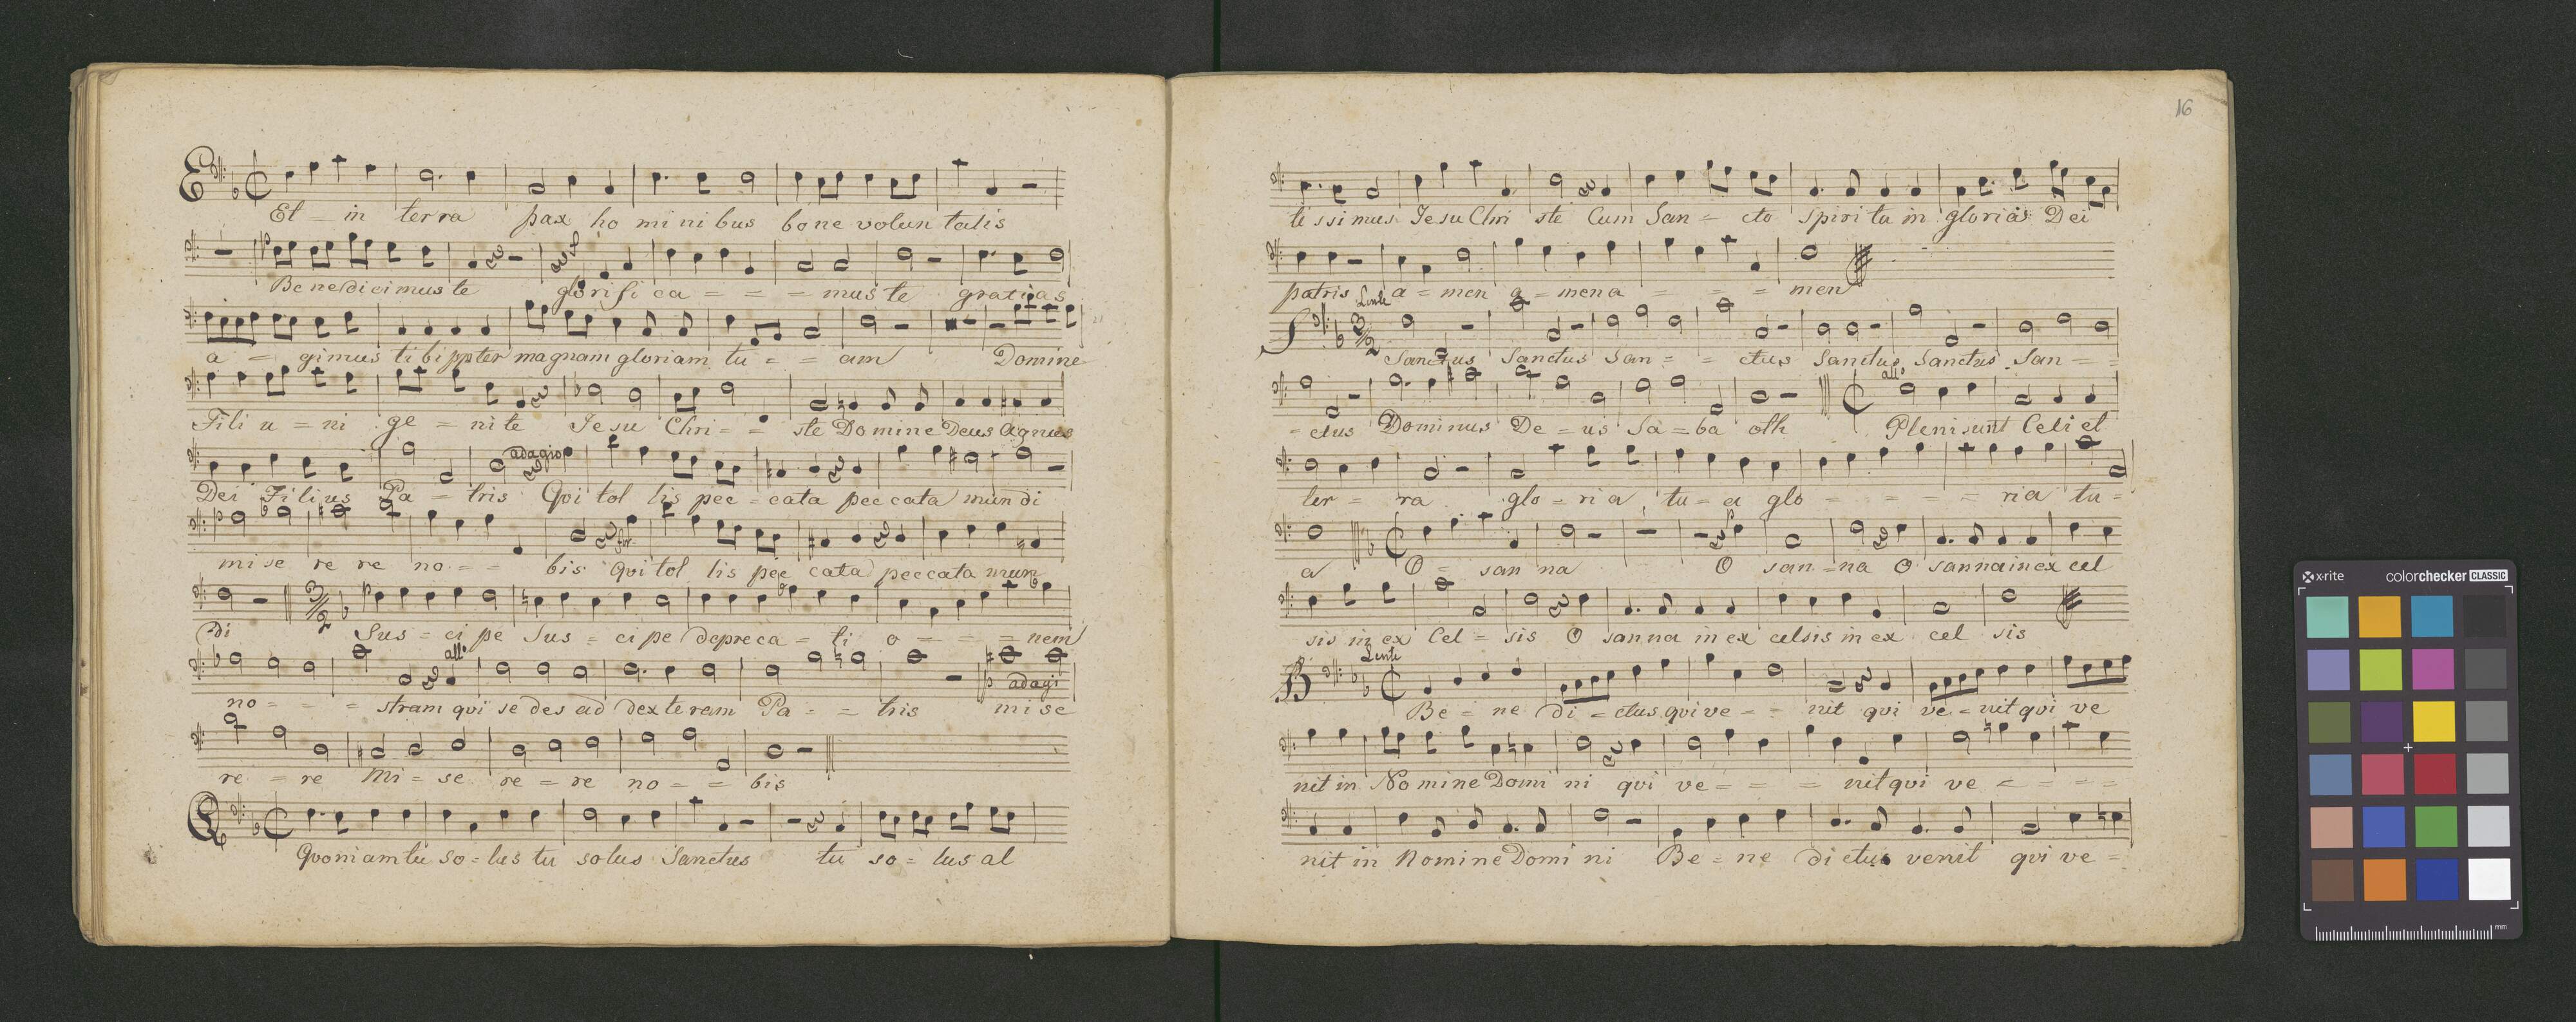 Et = in terra pax ho mi ni bus bo ne volun tatis
Be ne di ci mus te glo ri fi ca = = = mus te gratias
a = gimus ti bi ppter magnam gloriam tu = = am Domine
Fili u = ni ge = ni te Je su Chri = = ste Do mine Deus Agnus
adagio
Dei Filius Pa = tris Qvi tol lis pec = cata pec cata mun di
for
mi se re re no = = bis qvi tol lis pec cata peccata mun
di Sus = ci pe Sus = ci pe depreca = ti o = = = nem
all:o
no = = = stram qvi se des ad dex te ram Pa = = tris mi se
p adagi
re = re Mi = se re = re no = = bis
Qvoniam tu so = lus tu solus Sanctus tu so = lus al
16
ti ssi mus Je su Chri ste Cum San = cto spiri tu in glorias Dei
patris a = men a = men a = = = men
Lente
Sanctus Sanctus San = = ctus Sanctus Sanctus San = =
all:o
= ctus Dominus De = us Sa = ba oth Pleni sunt Celi et
ter = ra glo = ri a tu = a glo = = = = ria tu =
p
a O = san na O san = na O sanna in ex cel
sis in ex Cel = sis O sanna in ex celsis in ex cel sis
Lente
Be = ne di = ctus qvi ve = = nit qvi ve = nit qvi ve
nit in No mi ne Domi ni qvi ve = = = nit qvi ve = = = =
nit in Nomine Domi ni Be = ne di ctus venit qvi ve =
x·rite colorchecker CLASSIC
mm